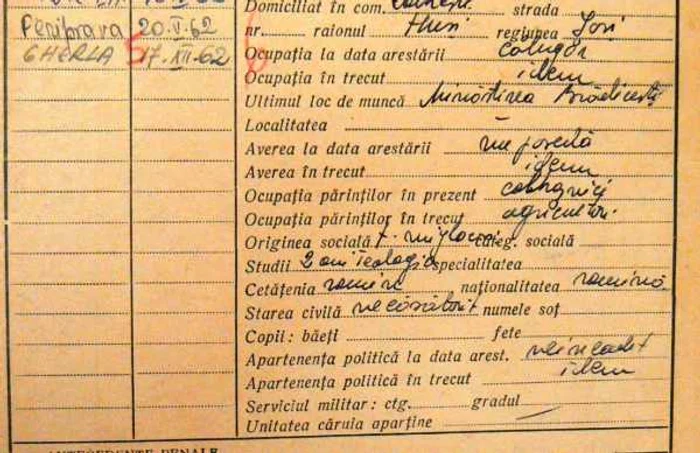 Periprava 20.V.62
GHERLA 17.XII.62
Domiciliat în com. strada
nr. raionul Huși regiunea Iași
Ocupația la data arestării călugăr
Ocupația în trecut idem
Ultimul loc de muncă Mînăstirea Brădicești
Localitatea
Averea la data arestării nu posedă
Averea în trecut idem
Ocupația părinților în prezent
Ocupația părinților în trecut agricultori
Originea socială ț. mijlocași categ. socială
Studii 2 ani Teologie specialitatea
Cetățenia română naționalitatea română
Starea civilă necăsătorit numele soț
Copii: băeți fete
Apartenența politică la data arest. neîncadrat
Apartenența politică în trecut idem
Serviciul militar: ctg. gradul
Unitatea căruia aparține
ANTECEDENTE PENALE